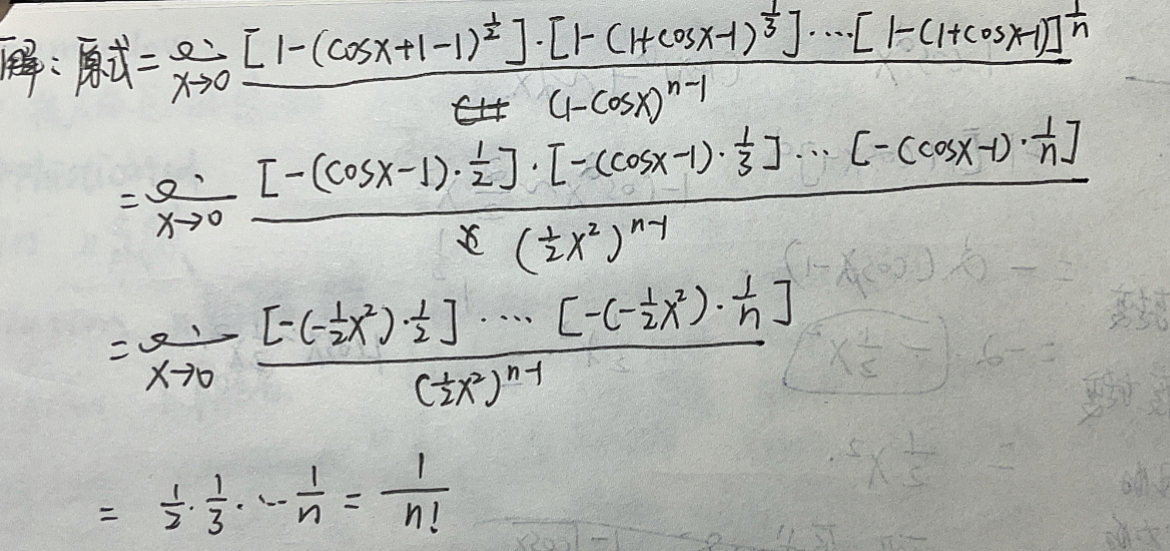 解：原式=lim x→0 [1-(cosx+1-1)^{1/2}]·[1-(1+cosx-1)^{1/3}]·…·[1-(1+cosx-1)]^{1/n} / (1-cosx)^{n-1}
=lim x→0 [-(cosx-1)·1/2]·[-(cosx-1)·1/3]…[-(cosx-1)·1/n] / (1/2 x²)^{n-1}
=lim x→0 [-(-1/2 x²)·1/2]·…[-(-1/2 x²)·1/n] / (1/2 x²)^{n-1}
= 1/2·1/3·…1/n = 1/n!